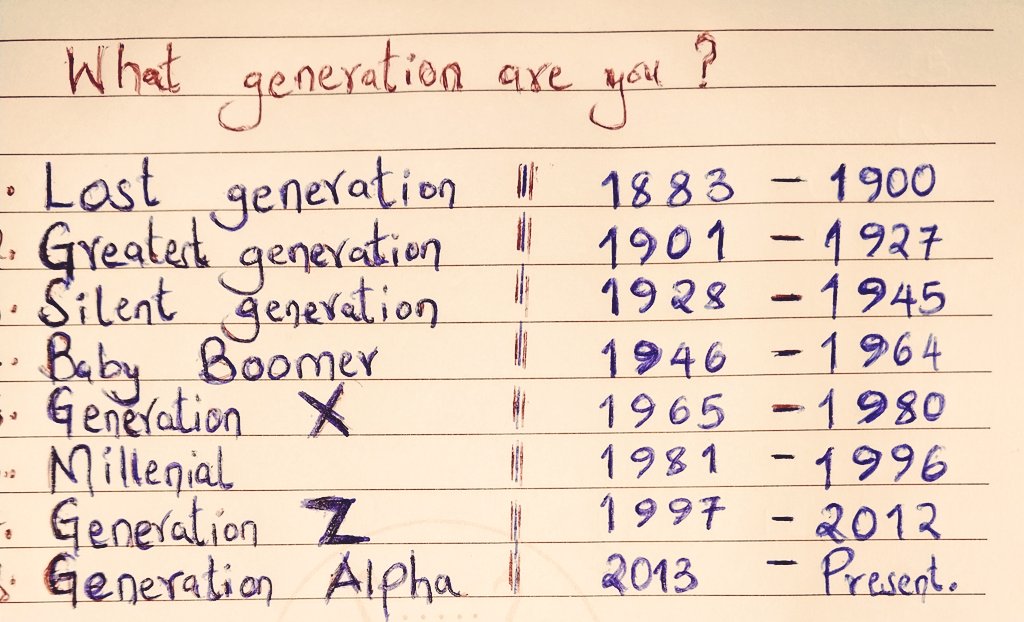 What generation are you ?
Lost generation 1883 - 1900
Greatest generation 1901 - 1927
Silent generation 1928 - 1945
Baby Boomer 1946 - 1964
Generation X 1965 - 1980
Millenial 1981 - 1996
Generation Z 1997 - 2012
Generation Alpha 2013 - Present.